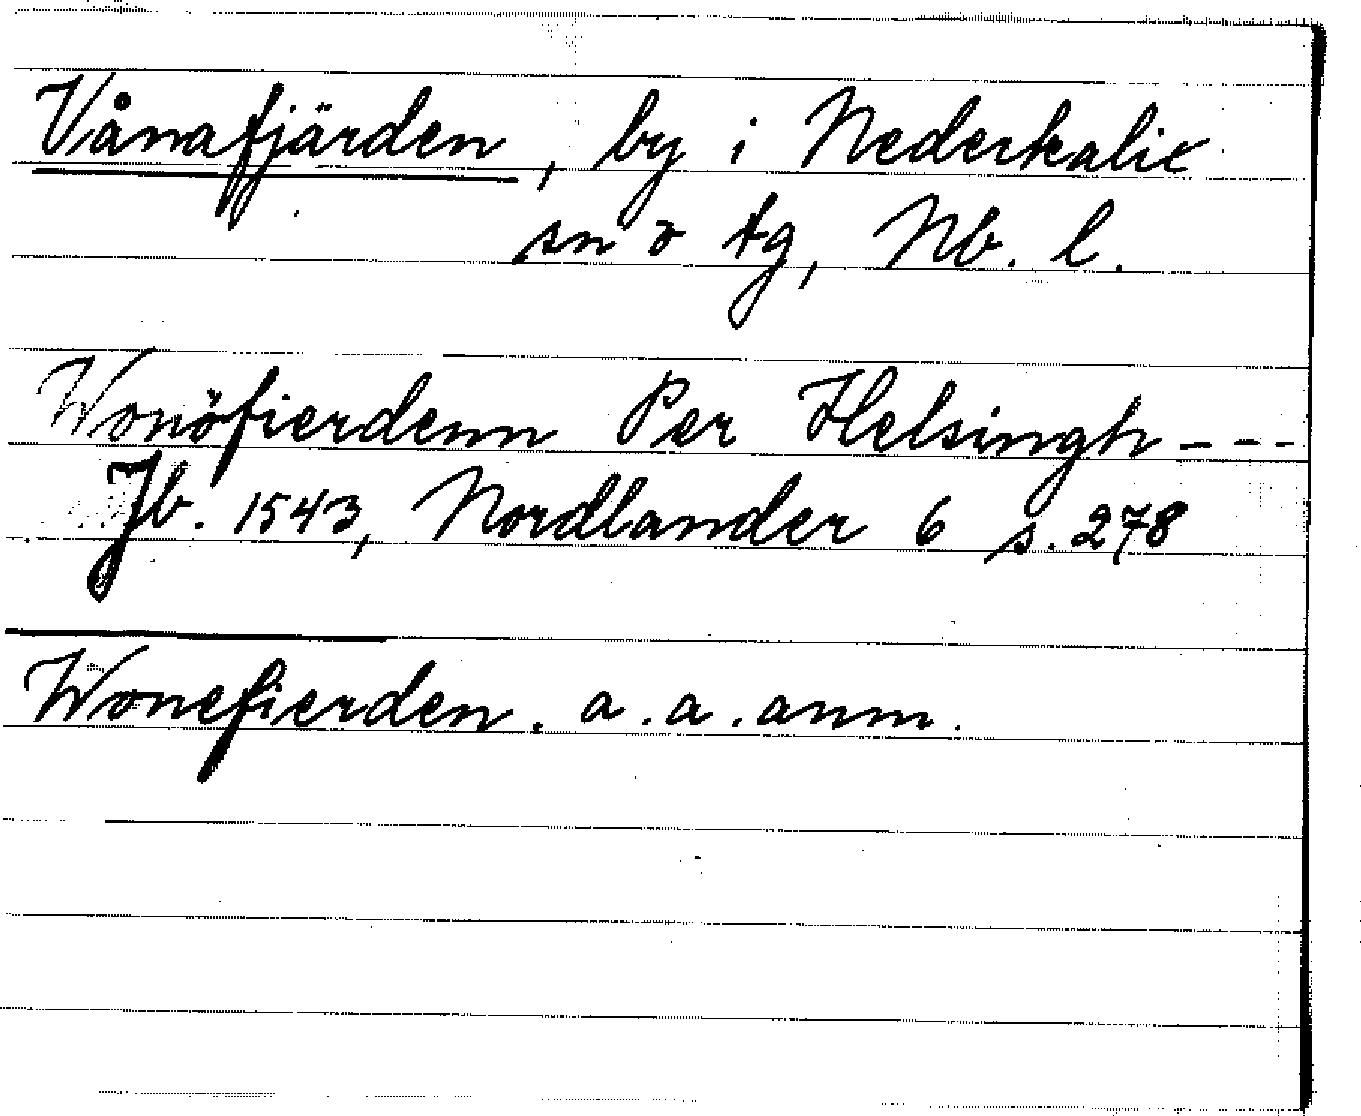 Vånafjärden, by i Nederkalix
sn o tg, Nb. l.
Wonöfierdenn Per Helsingh ---
Jb. 1543, Nordlander 6 s. 278
Wonefierden. a.a.anm.